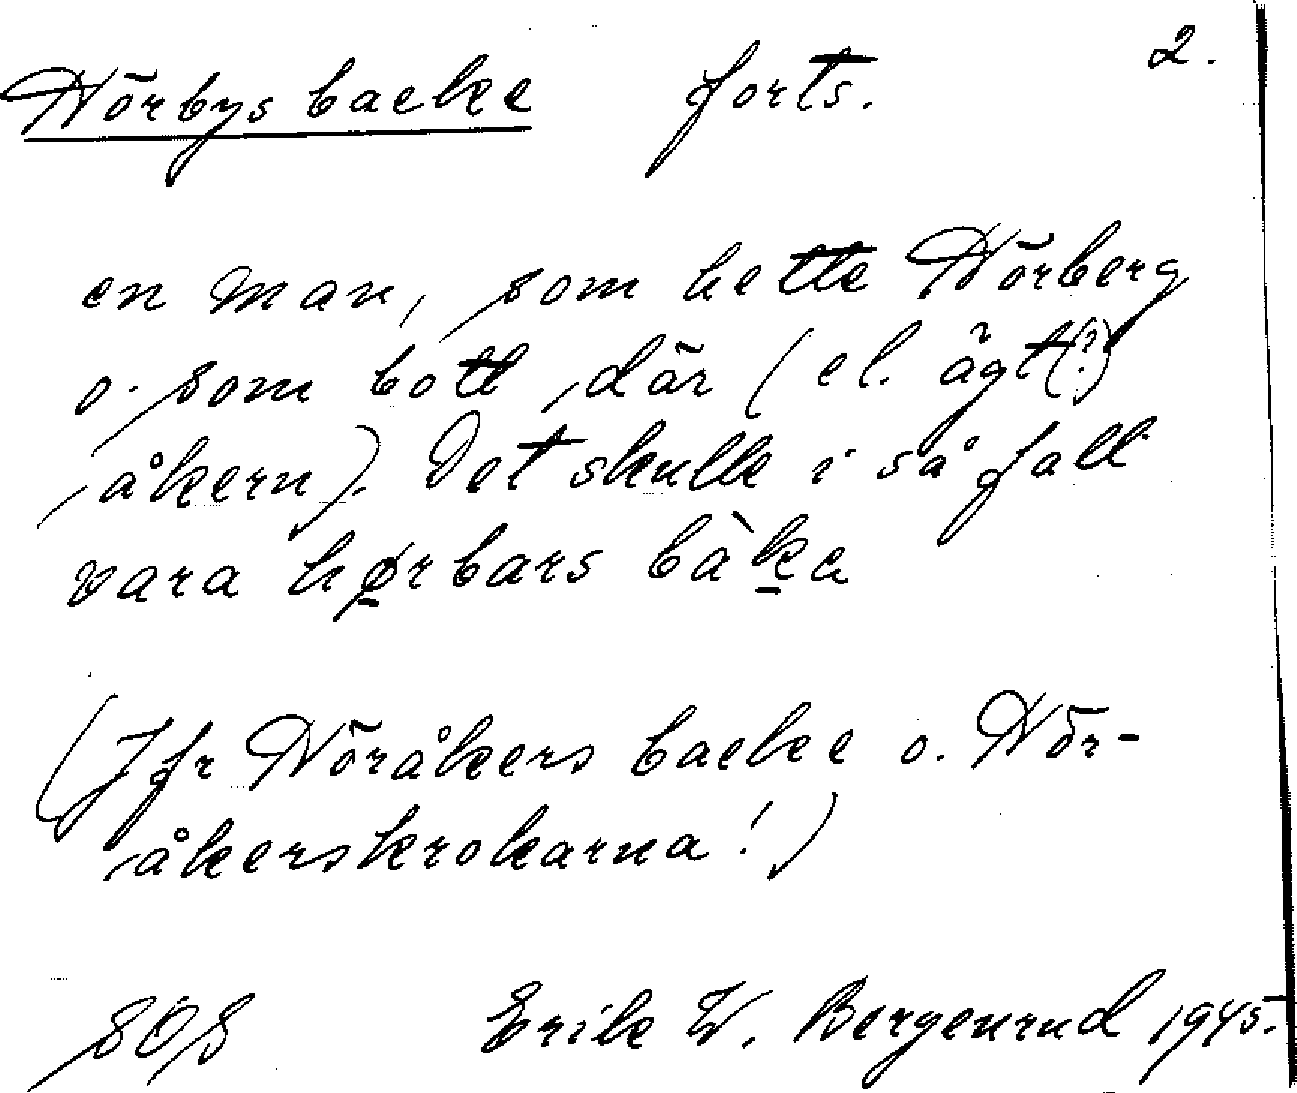 2.
Hörbys backe forts.
en man, som hette Hörberg
o. som bott där (el. ägt(?)
åkern). Det skulle i så fall
vara hø̱rbars bàḵa
(Jfr Höråkers backe o. Hör-
åkerskrokarna!)
SOS Erik W. Bergenrud 1945.